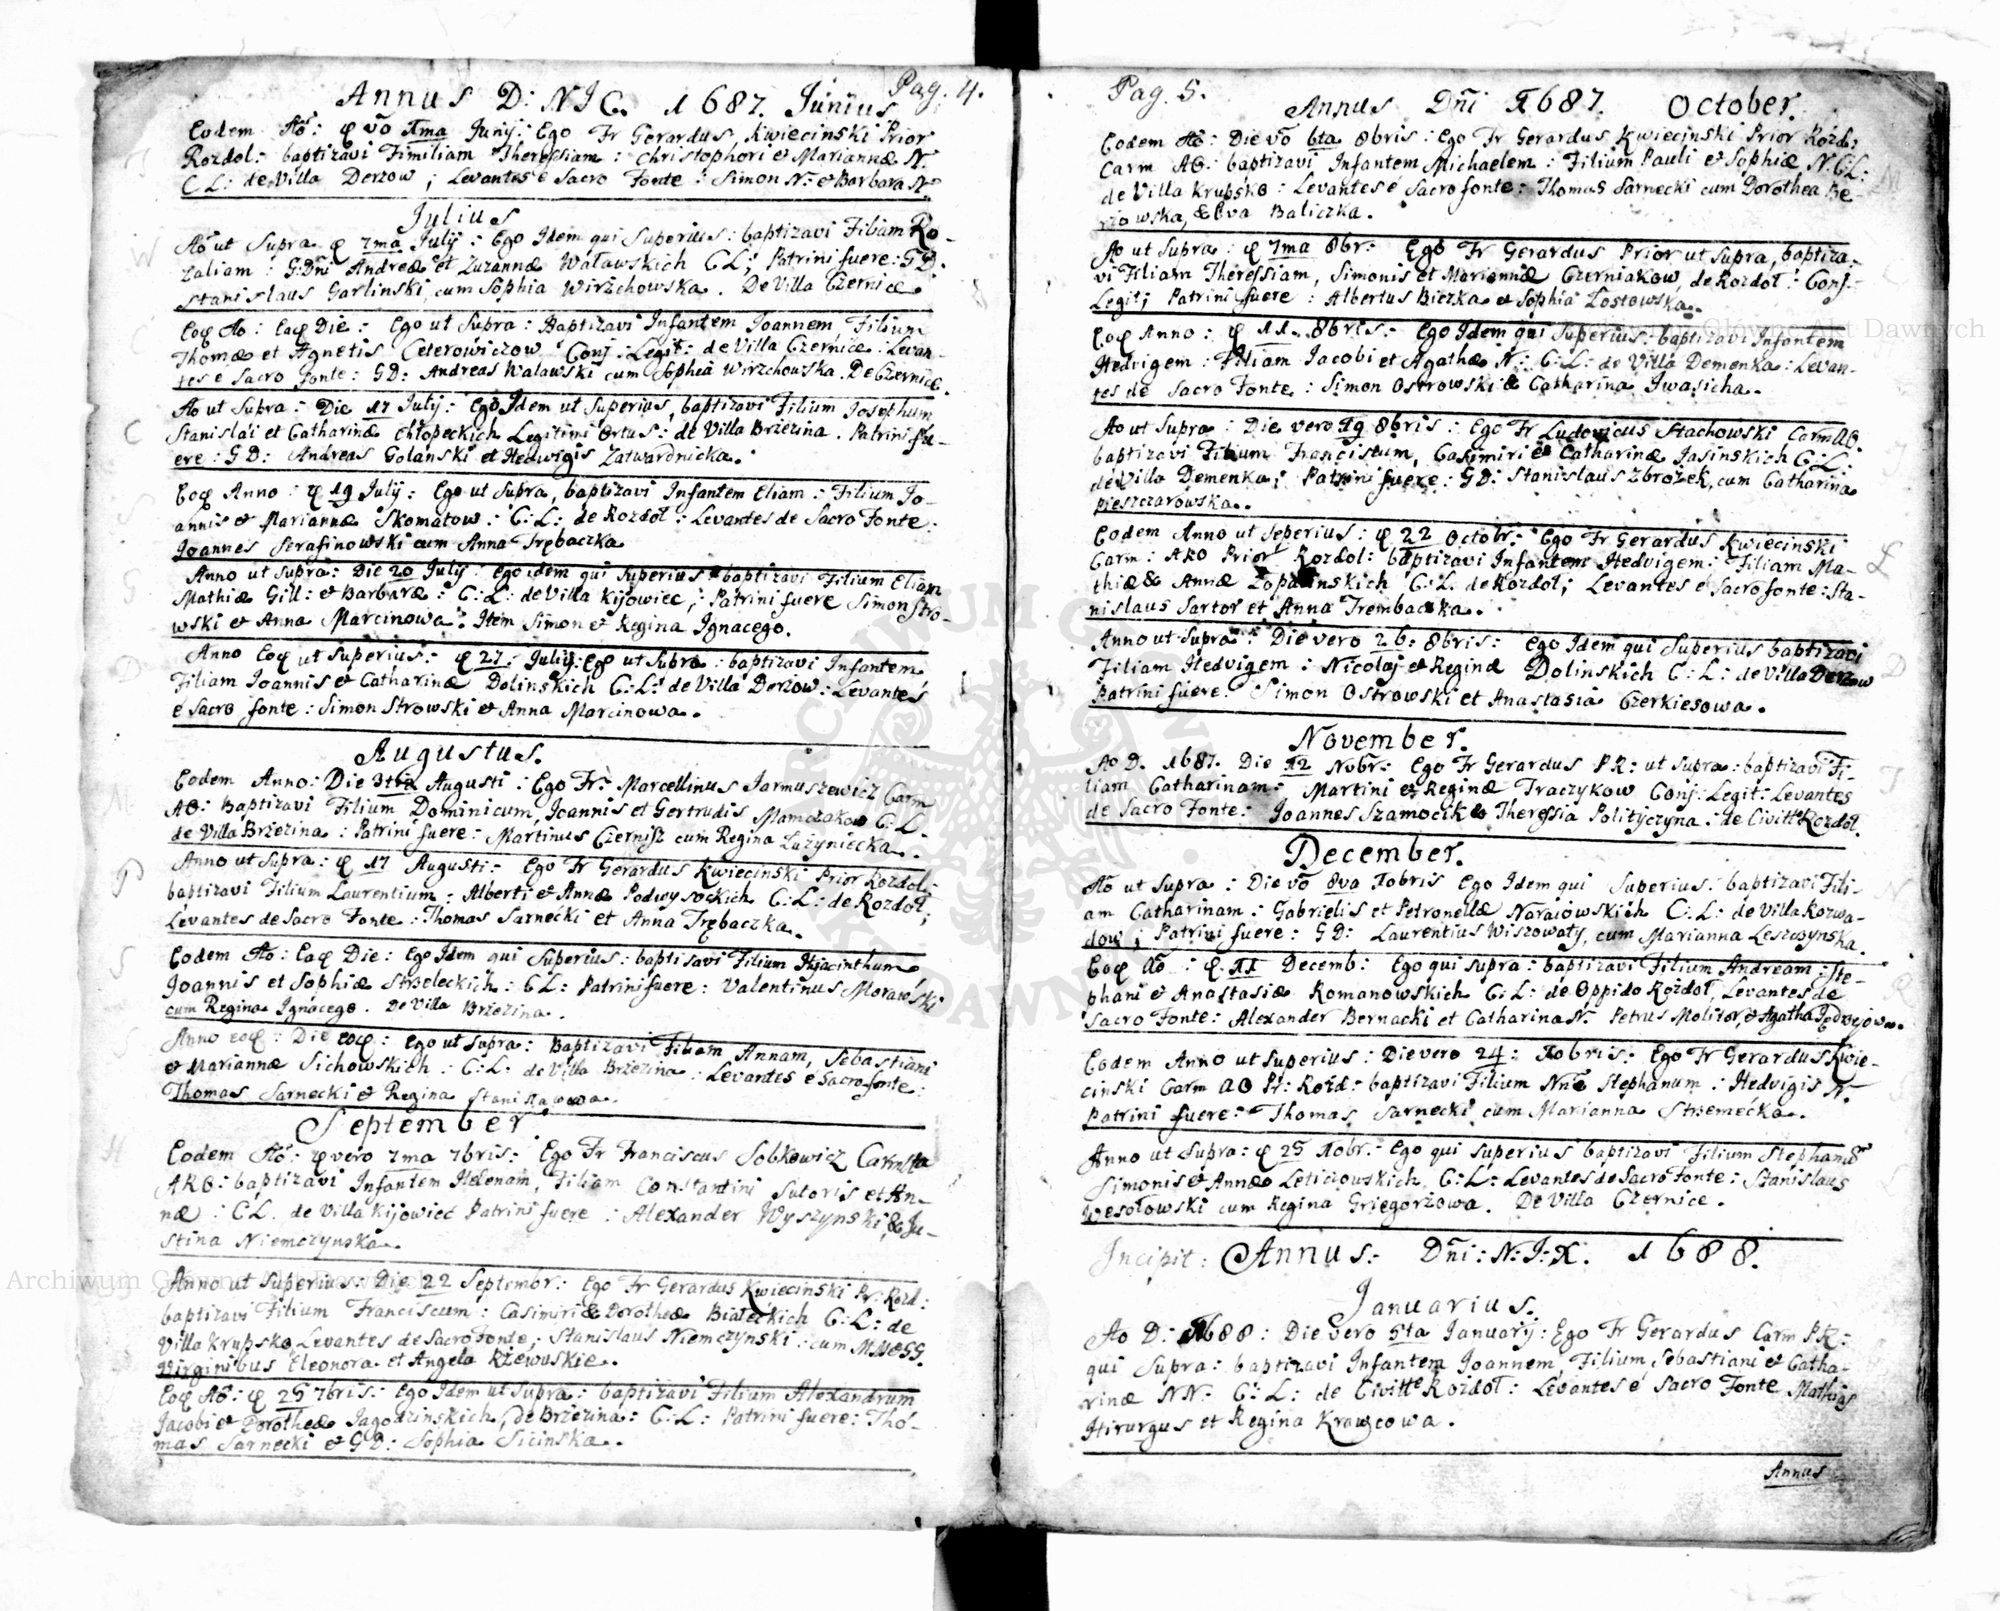 Pag. 4.
Annus D: NIC. 1687. Junius
Eodem Ao: q vo 11ma Junÿ: Ego Fr Gerardus Kwiecinski Prior
Rozdol: baptizavi Fimiliam Theressiam: Christophori et Mariannæ N.
C L: de Villa Derzow; Levantes é Sacro Fonte: Simon N: et Barbara N:
Julius
Ao ut Supra q 7ma Julÿ: Ego Idem qui Superius: baptizavi Filiam Ro-
zaliam: G:Dñi Andreæ et Zuzannæ Waławskich C L; Patrini fuere: G D.
Stanislaus Garlinski, cum Sophia Wirzchowska. De Villa Czernice
Eoq Ao: Eaq Die: Ego ut Supra: Baptizavi Infantem Joannem Filium
Thomæ et Agnetis Ceterowiczow Conj: Legit: de Villa Czernice: Levan-
tes é Sacro Fonte: GD: Andreas Walawski cum Sophia Wirzchowska. De Czernice
Ao ut Supra: Die 17 Julÿ: Ego Idem ut Superius, baptizavi Filium Josephum
Stanislai et Catharinæ Chłopeckich Legitimi Ortus: de Villa Brzezina. Patrini fu-
ere: GD: Andreas Golanski et Hedwigis Zatwardnicka.
Eoq Anno: q 19 Julÿ: Ego ut Supra, baptizavi Infantem Eliam: Filium Jo-
annis et Mariannæ Skomatow: C: L: de Rozdoł: Levantes de Sacro Fonte:
Joannes Serafinowski cum Anna Trębaczka
Anno ut Supra: Die 20 Julÿ: Ego idem qui Superius baptizavi Filium Eliam
Mathiæ Gill: et Barbaræ: C: L: de Villa Kijowiec; Patrini fuere Simon Stro-
wski et Anna Marcinowa: Item Simon et Regina Ignacego.
Anno Eoq ut Superius: q 27: Julÿ: Ego ut Supra: baptizavi Infantem
Filiam Joannis et Catharinæ Dolinskich C: L: de Villa Derzow: Levantes
é Sacro fonte: Simon Strowski et Anna Marcinowa.
Augustus.
Eodem Anno: Die 3tia Augusti: Ego Fr. Marcellinus Jarmuszewicz Carm
AO: Baptizavi Filium Dominicum, Joannis et Gertrudis Mamczakow C: L.
de Villa Brzezina: Patrini fuere: Martinus Czernisz cum Regina Luzyniecka.
Anno ut Supra: q 17 Augusti: Ego Fr Gerardus Kwiecinski Prior Rozdol:
baptizavi Filium Laurentium: Alberti et Annæ Podwysockich C: L: de Rozdoł;
Levantes de Sacro Fonte: Thomas Sarnecki et Anna Trębaczka.
Eodem Ao: Eaq Die: Ego Idem qui Superius: baptisavi Filium Hyacinthum
Joannis et Sophiæ Strzeleckich: CL: Patrini fuere: Valentinus Morawski
cum Regina Ignácego. De Villa Brzezina.
Anno eoq: Die eoq: Ego ut Supra: Baptizavi Filiam Annam, Sebastiani
et Mariannæ Sichowskich: C: L: de Villa Brzezina: Levantes é Sacro fonte:
Thomas Sarnecki et Regina
September
Eodem Ao: q vero 7ma 7bris: Ego Fr Franciscus Sobkowicz Carmta
ARO: baptizavi Infantem Helenam, Filiam Constantini Sutoris et An-
næ: CL. de Villa Kijowiec Patrini fuere: Alexander Wyszynski, & Ju-
stina Niemczynska.
Anno ut Superius: Die 22 Septembr: Ego Fr Gerardus Kwiecinski Pr: Rozd:
baptizavi Filium Franciscum: Casimiri & Dorotheæ Białeckich C: L: de
Villa Krupsko Levantes de Sacro Fonte; Stanislaus Niemczynski: cum MMGGG
Virginibus Eleonora et Angela Rzewuskie.
Eoq Ao: q 25 7bris: Ego Idem ut Supra: baptizavi Filium Alexandrum
Jacobi et Dorotheæ Jagodzinskich, de Brzezina: C: L: Patrini fuere: Tho-
mas Sarnecki et GD: Sophia Sicinska.
Pag. 5.
Annus Dñi 1687. October.
Eodem Ao: Die vo 6ta 8bris: Ego Fr Gerardus Kwiecinski Prior Rozd:
Carm AO: baptizavi Infantem Michaelem: Filium Pauli et Sophiæ N. C: L:
de Villa Krupsko: Levantes é Sacro fonte: Thomas Sarnecki cum Dorothea Be-
rzowska, & Eva Baliczka.
Ao ut Supra: q 7ma 8br: Ego Fr Gerardus Prior ut Supra, baptiza-
vi Filiam Theressiam, Simonis et Mariannæ Czerniakow, de Rozdoł: Conj:
Legit; Patrini fuere: Albertus Bieczka et Sophia Łostowska.
Eoq Anno: q 11. 8bris: Ego Idem qui Superius: baptizavi Infantem
Hedvigem: Filiam Jacobi et Agathæ N: C: L: de Villa Demenka: Levan-
tes de Sacro Fonte: Simon Ostrowski & Catharina Jwasicha.
Ao ut Supra: Die vero 19 8bris: Ego Fr Ludovicus Stachowski Carm AO
baptizavi Filium Franciscum, Casimiri et Catharinæ Jasinskich C: L:
de Villa Demenka; Patrini fuere: GD: Stanislaus Zbrożek, cum Catharina
Pieszczarowska.
Eodem Anno ut Seperius: q 22 Octobr: Ego Fr Gerardus Kwiecinski
Carm: ARO Prior Rozdol: baptizavi Infantem Hedvigem: Filiam Ma-
thiæ & Annæ C: L. de Rozdoł; Levantes é Sacro fonte: Sta-
nislaus Sartor et Anna Trembaczka.
Anno ut Supra: Die vero 26: 8bris: Ego Idem qui Superius baptizavi
Filiam Hedvigem: Nicolaj et Reginæ Dolinskich C: L: de Villa Derzow
Patrini fuere: Simon Ostrowski et Anastasia Czerkiesowa.
November.
Ao D. 1687. Die 12 Nobr: Ego Fr Gerardus PR: ut Supra: baptizavi Fi-
liam Catharinam: Martini et Reginæ Traczykow Conj: Legit: Levantes
de Sacro Fonte: Joannes Szamocik & Theressia Polityczyna: de Civitte Rozdoł.
December.
Ao ut Supra: Die vo 8va Xobris Ego Idem qui Superius: baptizavi Fili-
am Catharinam: Gabrielis et Petronellæ Naraiowskich C: L: de Villa Rozwa-
dow; Patrini fuere: GD: Laurentius Wiszowaty, cum Marianna Leszczynska
Eoq Ao: q. 11 Decemb: Ego qui Supra: baptizavi Filium Andream: Ste-
phani et Anastasiæ Romanowskich C: L: de Oppido Rozdoł, Levantes de
Sacro Fonte: Alexander Bernacki et Catharina N. Petrus Molitor, et Agatha
Eodem Anno ut Superius: Die vero 24: Xobris: Ego Fr Gerardus Kwie-
cinski Carm AO Pr: Rozd: baptizavi Filium Nne Stephanum: Hedvigis N.
Patrini fuere: Thomas Sarnecki cum Marianna Strzemećka.
Anno ut Supra: q 25 Xobr: Ego qui Superius baptizavi Filium Stephanum
Simonis et Annæ Leticiowskich, C: L: Levantes de Sacro Fonte: Stanislaus
Wesołowski cum Regina Griegorzowa. De Villa Czernice.
Incipit: Annus: Dñi: N: I: X. 1688.
Januarius.
Ao D: 1688: Die vero 5ta Januarÿ: Ego Fr Gerardus Carm PR:
qui Supra: baptizavi Infantem Joannem, Filium Sebastiani et Catha-
rinæ NN: C: L: de Civitte Rozdoł: Levantes é Sacro Fonte Mathias
Hirurgus et Regina Krawcowa.
Annus
Archiwum Główne Akt Dawnych